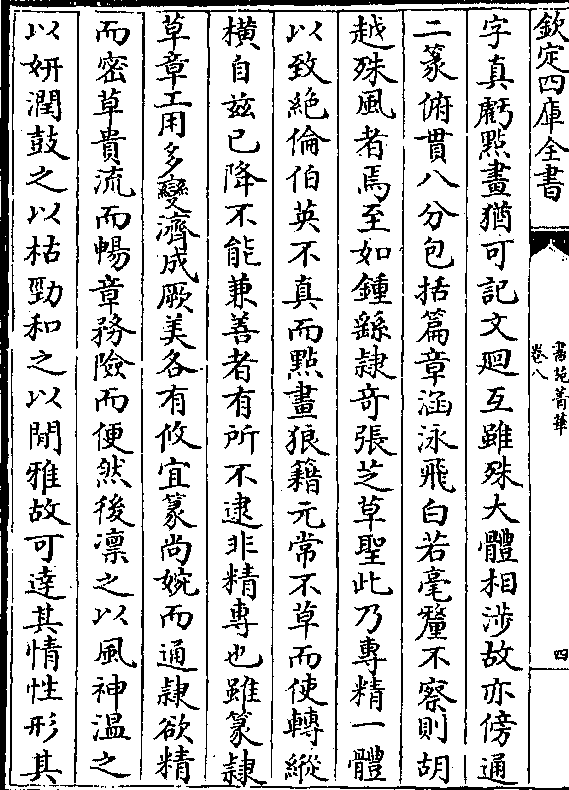 欽定四庫全書
書苑菁華
卷八
四
字真虧點畫猶可記文廻互雖殊大體相涉故亦傍通
二篆俯貫八分包括篇章涵泳飛白若毫釐不察則胡
越殊風者焉至如鍾繇隷奇張芝草聖此乃專精一體
以致絶倫伯英不真而點畫狼籍元常不草而使轉縱
橫自兹已降不能兼善者有所不逮非精專也雖篆隷
草章工用多變濟成厥美各有攸宜篆尚婉而通隷欲精
而密草貴流而暢章務險而便然後凛之以風神温之
以妍潤鼓之以枯勁和之以閒雅故可達其情性形其